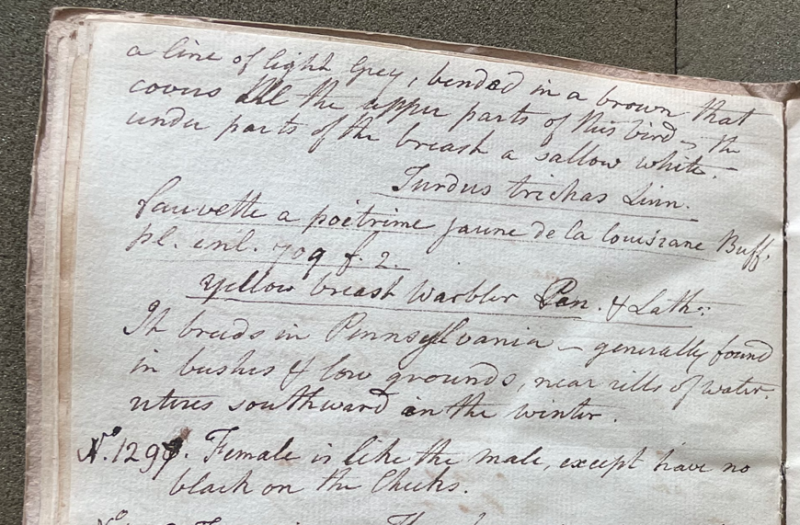 a line of light Grey, bended in a brown that
covers all the upper parts of this bird – the
under parts of the breast a sallow white. –
Turdus trichas Linn.
fauvette a poitrine jaune de la louisiane Buff.
pl. enl. 709 f. 2.
Yellow breast Warbler Pen. & Lath:
It breeds in Pennsylvania – generally found
in bushes & low grounds, near rills of water.
retires southward in the winter.
No. 1299. Female is like the male, except have no
black on the Cheeks.